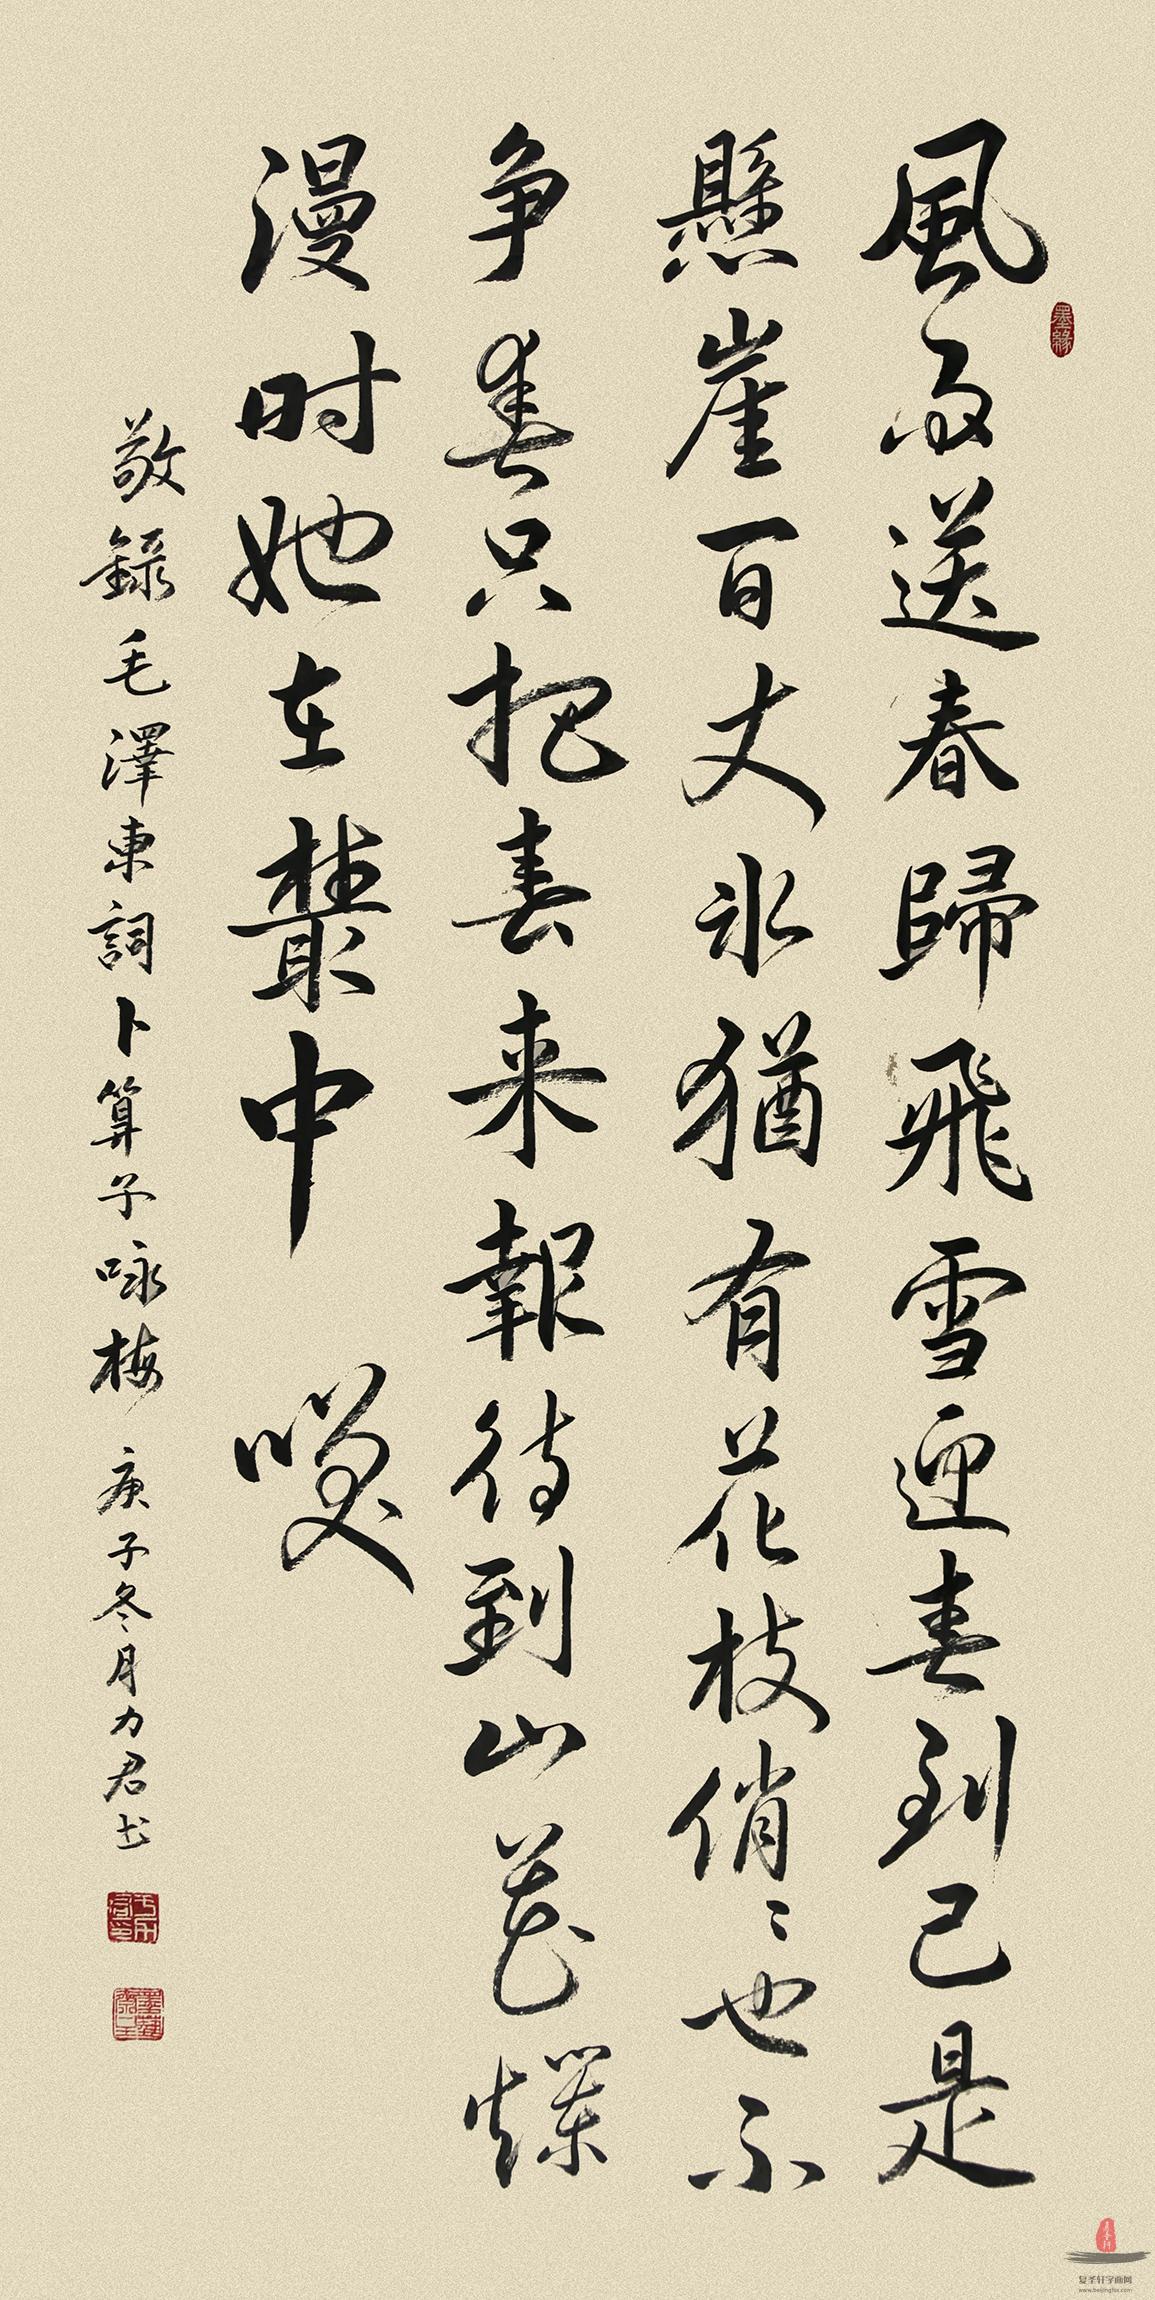 風雨送春歸飛雪迎春到已是
懸崖百丈冰猶有花枝俏〻也不
争春只把春来報待到山花爛
漫时她在叢中 笑
敬錄毛澤東詞卜算子咏梅 庚子冬月力君书
墨緣
复圣轩字画网